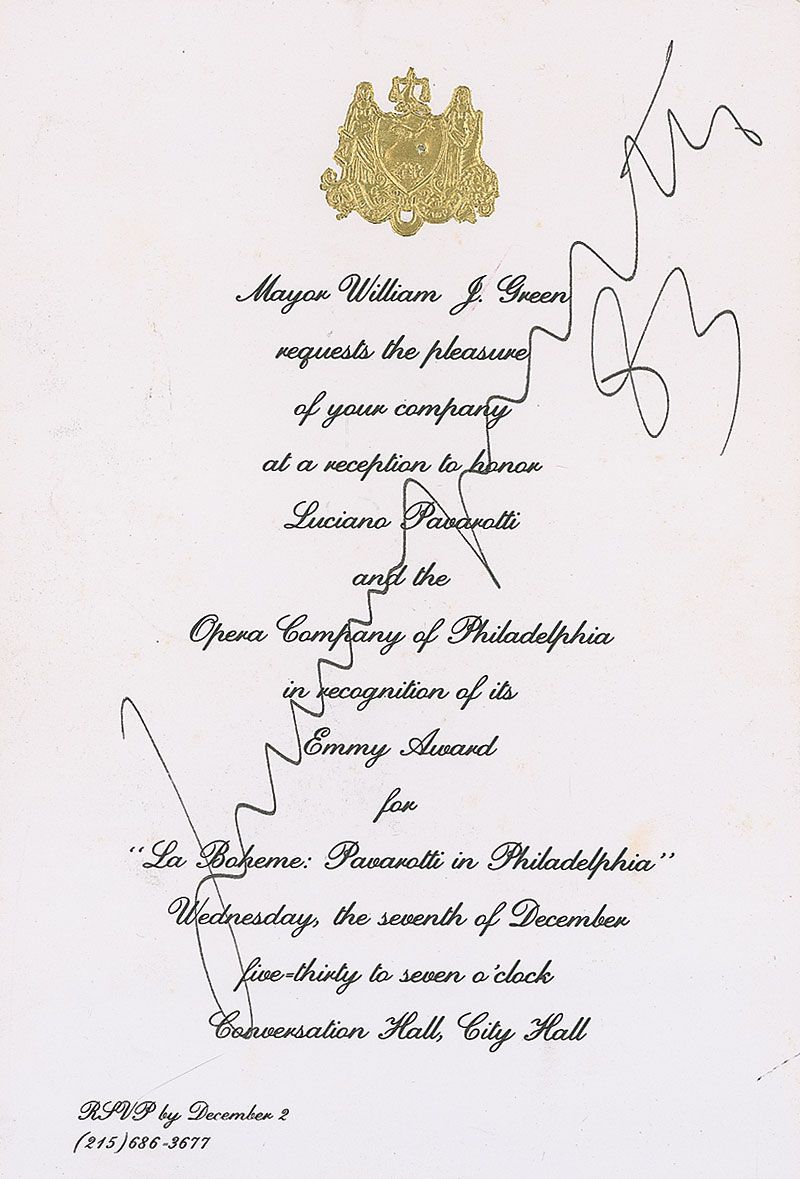 Mayor William J. Green
requests the pleasure
of your company
at a reception to honor
Luciano Pavarotti
and the
Opera Company of Philadelphia
in recognition of its
Emmy Award
for
“La Boheme: Pavarotti in Philadelphia”
Wednesday, the seventh of December
five-thirty to seven o'clock
Conversation Hall, City Hall
RSVP by December 2
(215)686-3677